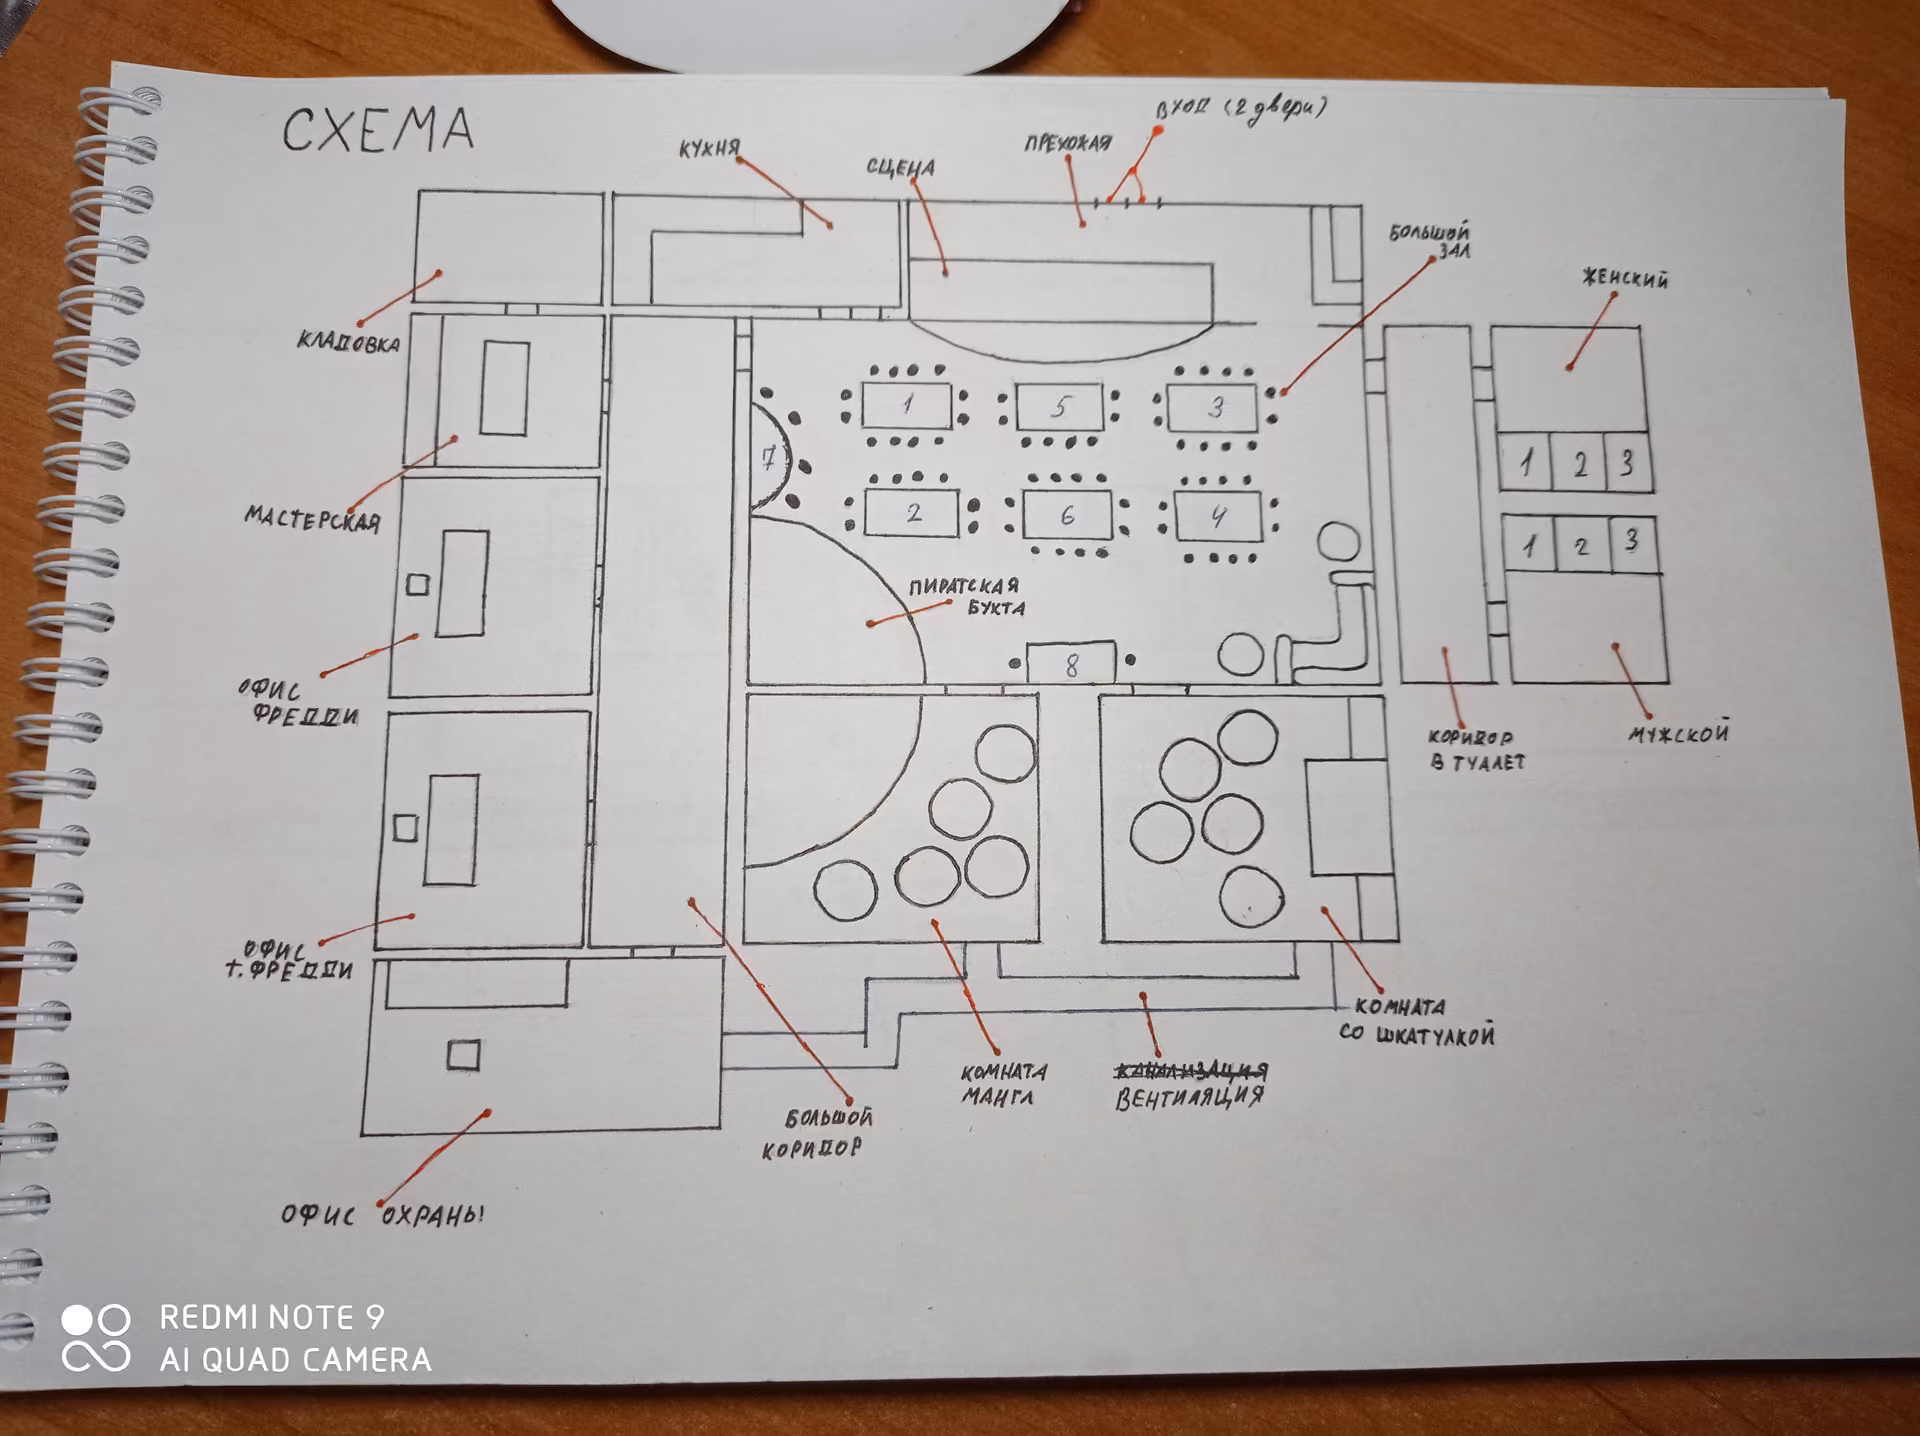 СХЕМА
ВХОД (2 двери)
КУХНЯ
СЦЕНА
ПРЕХОЖАЯ
БОЛЬШОЙ
ЗАЛ
ЖЕНСКИЙ
КЛАДОВКА
1
5
3
7
1 2 3
2
6
4
МАСТЕРСКАЯ
1 2 3
ПИРАТСКАЯ
БУХТА
8
ОФИС
ФРЕДДИ
КОРИДОР
В ТУАЛЕТ
МУЖСКОЙ
ОФИС
Т. ФРЕДДИ
КОМНАТА
СО ШКАТУЛКОЙ
КОМНАТА
МАНГЛ
КАНАЛИЗАЦИЯ
ВЕНТИЛЯЦИЯ
БОЛЬШОЙ
КОРИДОР
ОФИС ОХРАНЫ
REDMI NOTE 9
AI QUAD CAMERA